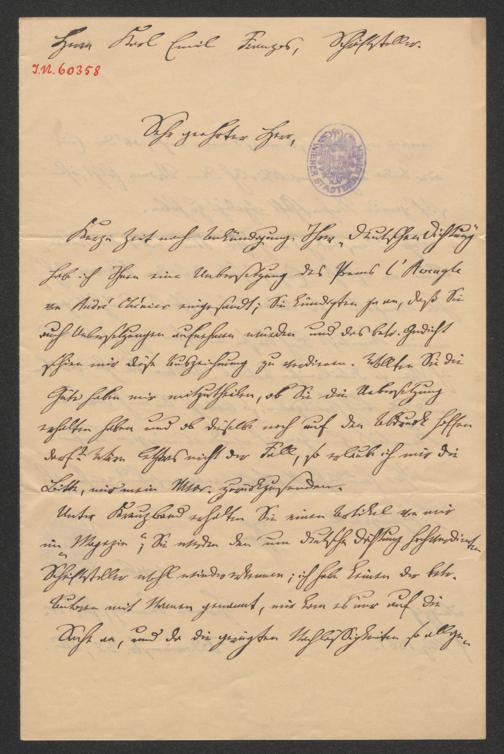 Herrn Karl Emil Franzos, Schriftsteller.
I.N. 60358
Sehr geehrter Herr,
WIENER STADTBIBLIOTHEK
Kurze Zeit nach Ankündigung Ihrer „Deutschen Dichtung"
hab ich Ihnen eine Uebersetzung des Poems L'Aveugle
von André Chénier eingesandt; Sie kündigten ja an, daß Sie
auch Uebersetzungen aufnehmen würden und das betr. Gedicht
schien mir diese Auszeichnung zu verdienen. Wollten Sie die
Güte haben mir mitzutheilen, ob Sie die Uebersetzung
erhalten haben und ob dieselbe noch auf den Abdruck hoffen
darf? Wäre Letzteres nicht der Fall, so erlaub ich mir die
Bitte, mir mein Mscr. zurückzusenden.
Unter Kreuzband erhalten Sie einen Artikel von mir
im „Magazin"; Sie werden den um deutsche Dichtung hochverdienten
Schriftsteller wohl wiedererkennen; ich habe keinen der betr.
Autoren mit Namen genannt, mir kam es nur auf die
Sache an, und da die gerügten Nachlässigkeiten so allgem